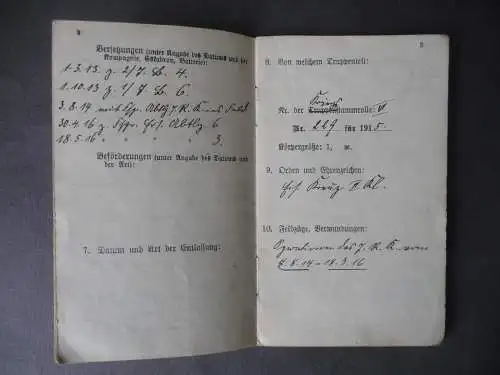 Versetzungen (unter Angabe des Datums und der
Kompagnie, Eskadron, Batterie):
1.3.13. z. 2/7. B. 4.
1.10.13 z. 1/7 B. 6
3.8.14
30.4.16 z. 6
18.5.16 " " " 3.
Beförderungen (unter Angabe des Datums und
der Art):
7. Datum und Art der Entlassung:
8. Von welchem Truppenteil:
Kriegs
Nr. der Truppenstammrolle: VI
Nr. 227 für 1915.
Körpergröße: 1, m.
9. Orden und Ehrenzeichen:
Eis. Kreuz II. Kl.
10. Feldzüge, Verwundungen:
Operationen des
4.8.14 – 18.3.16